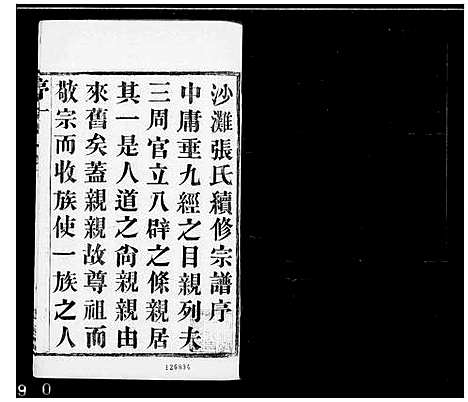 沙灘張氏續修宗譜序
中庸垂九經之目親列夫
三周官立八辟之條親居
其一是人道之尚親親由
來舊矣蓋親親故尊祖而
敬宗而收族使一族之人
序一
126896
90